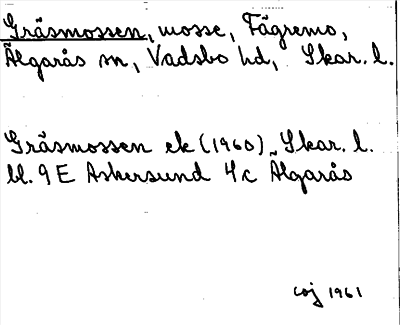 Gräsmossen, mosse, Fägremo,
Älgarås sn, Vadsbo hd, Skar. l.
Gräsmossen ek (1960) Skar. l.
bl. 9 E Askersund 4c Älgarås
coj 1961